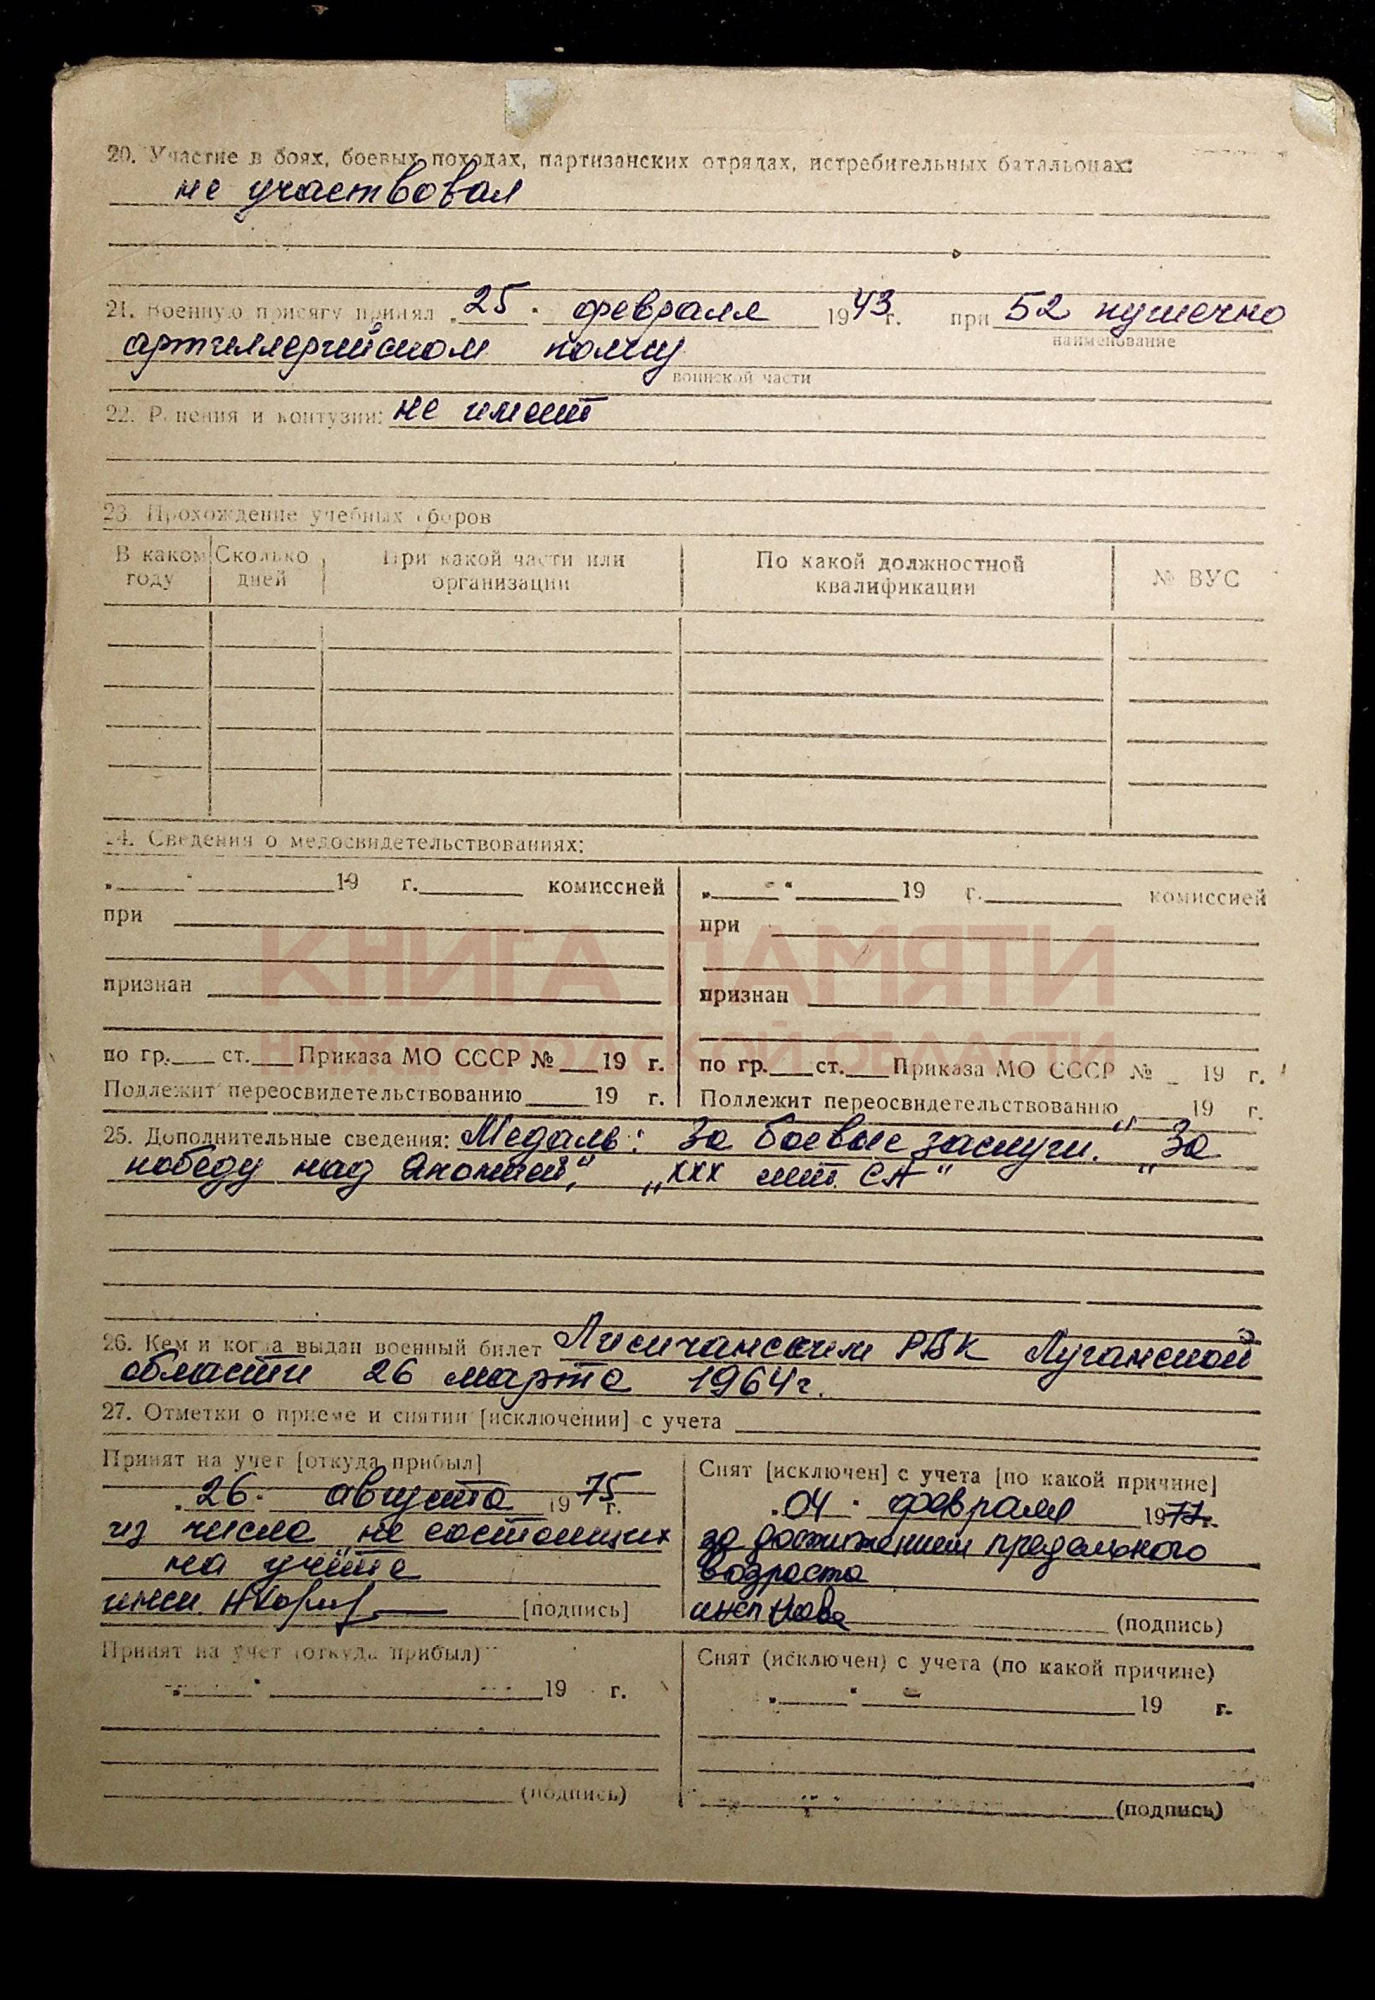 20. Участие в боях, боевых походах, партизанских отрядах, истребительных батальонах:
не участвовал
21. Военную присягу принял „25“ февраля 1943 г. при 52 пушечно
наименование
артиллерийском полку
воинской части
22. Ранения и контузии: не имеет
23. Прохождение учебных сборов
В каком Сколько При какой части или По какой должностной № ВУС
году дней организации квалификации
24. Сведения о медосвидетельствованиях:
„ “ 19 г. комиссией
при
признан
по гр. ст. Приказа МО СССР № 19 г.
Подлежит переосвидетельствованию 19 г.
„ “ 19 г. комиссией
при
признан
по гр. ст. Приказа МО СССР № 19 г.
Подлежит переосвидетельствованию 19 г.
КНИГА ПАМЯТИ
НИЖЕГОРОДСКОЙ ОБЛАСТИ
25. Дополнительные сведения: Медаль: За боевые заслуги." "За
победу над Японией", „XXX лет СА"
26. Кем и когда выдан военный билет Лисичанским РВК Луганской
области 26 марта 1964 г.
27. Отметки о приеме и снятии [исключении] с учета
Принят на учет [откуда прибыл]
„26“ августа 1975 г.
из числа не состоящих
на учёте
[подпись]
Снят [исключен] с учета [по какой причине]
„04“ февраля 1977 г.
за достижением предельного
возраста
(подпись)
Принят на учет (откуда прибыл)
„ “ 19 г.
(подпись)
Снят (исключен) с учета (по какой причине)
„ “ 19 г.
(подпись)